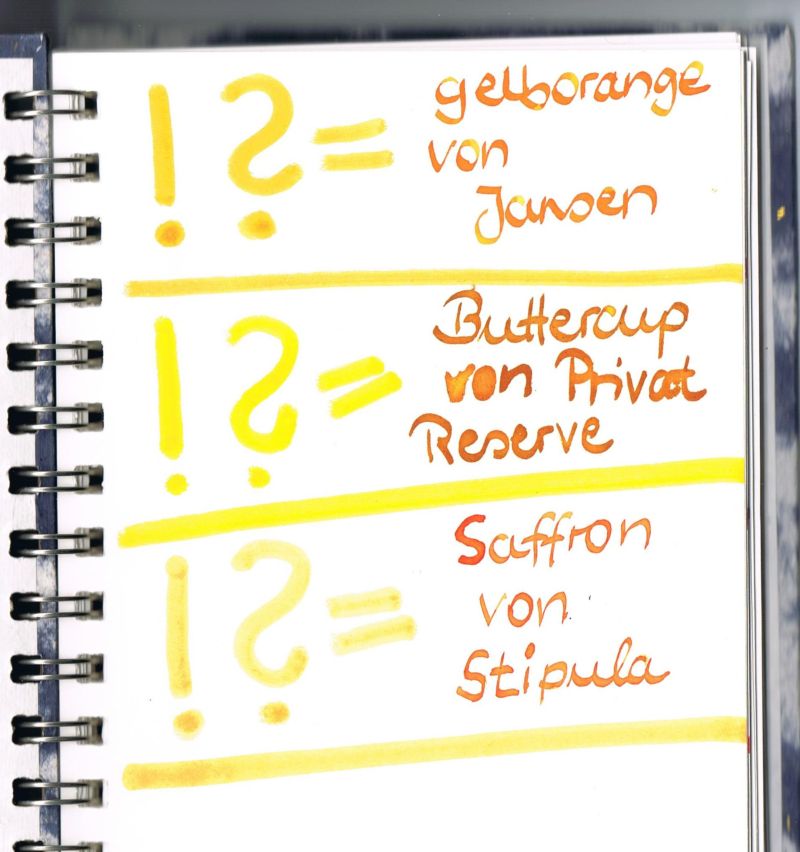 !?= gelborange
von
Jansen
!?= Buttercup
von Privat
Reserve
!?= Saffron
von
Stipula